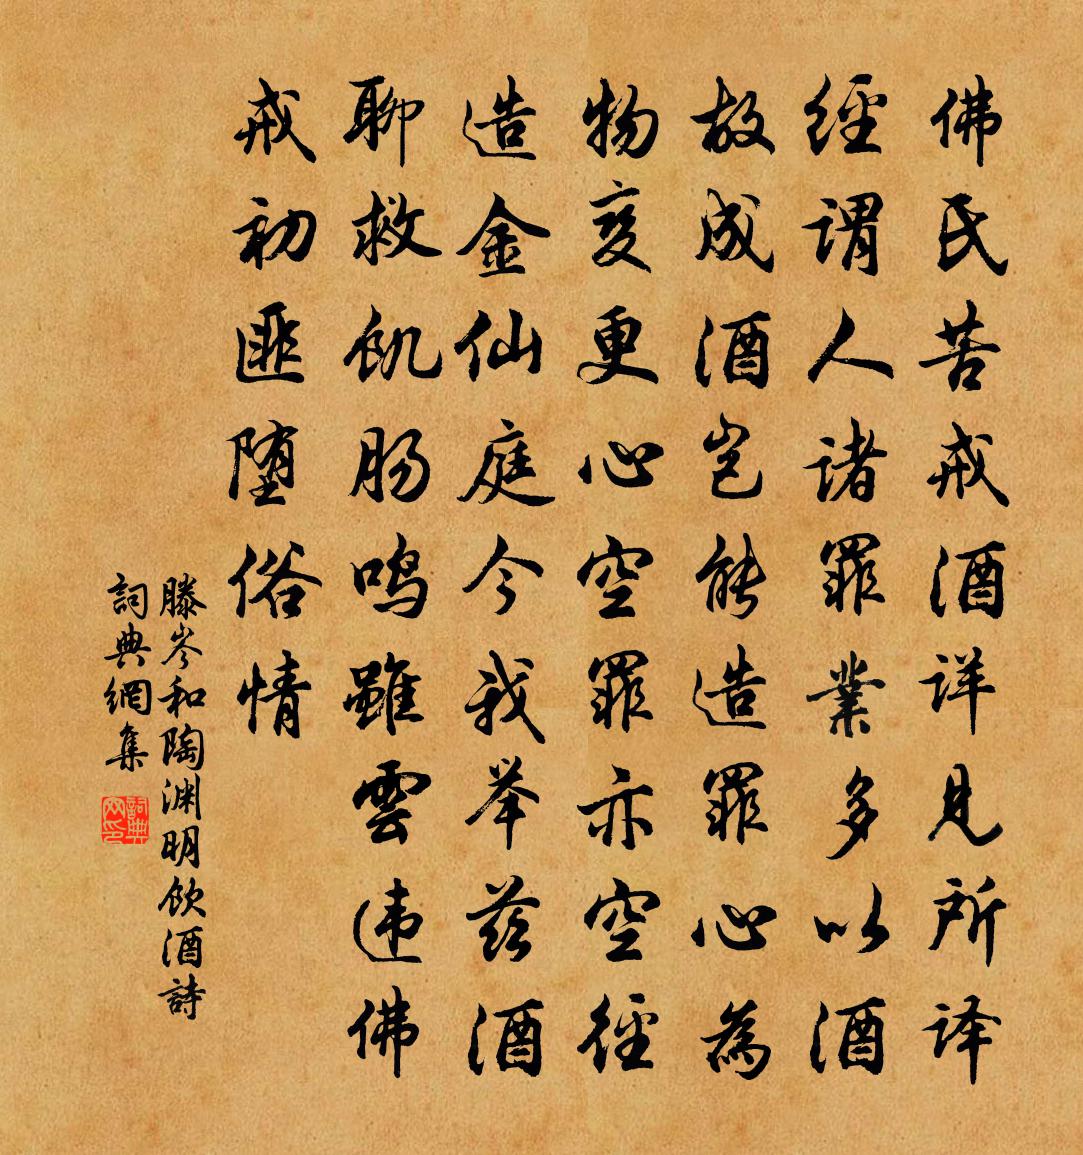 佛氏苦戒酒详見所译
經謂人諸罪業多以酒
故成酒岂能造罪心為
物变更心空罪亦空徑
造金仙庭今我举兹酒
聊救飢肠鸣雖雲违佛
戒初匪堕俗情
滕岑和陶渊明飲酒詩
詞典網集
詞典网印